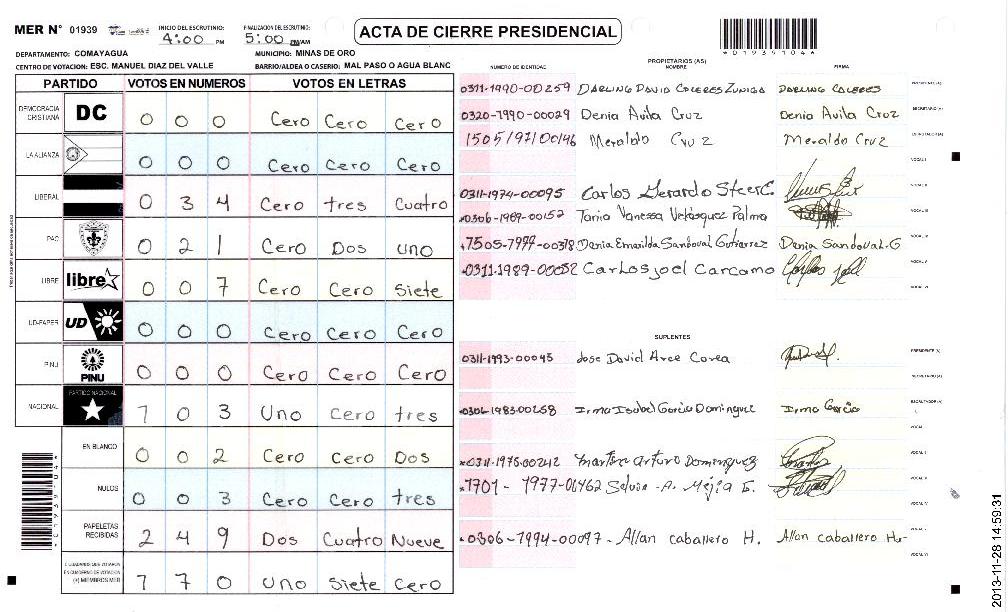 MER N° 01939
INICIO DEL ESCRUTINIO: 4:00 PM
FINALIZACION DEL ESCRUTINIO: 5:00 PM/AM
ACTA DE CIERRE PRESIDENCIAL
DEPARTAMENTO: COMAYAGUA
MUNICIPIO: MINAS DE ORO
CENTRO DE VOTACION: ESC. MANUEL DIAZ DEL VALLE
BARRIO/ALDEA O CASERIO: MAL PASO O AGUA BLANC
PARTIDO VOTOS EN NUMEROS VOTOS EN LETRAS
DEMOCRACIA CRISTIANA DC 0 0 0 Cero Cero Cero
LA ALIANZA 0 0 0 Cero Cero Cero
LIBERAL 0 3 4 Cero tres Cuatro
PAC 0 2 1 Cero Dos uno
LIBRE libre 0 0 7 Cero Cero Siete
UD-FAPER UD 0 0 0 Cero Cero Cero
PINU PINU 0 0 0 Cero Cero Cero
NACIONAL PARTIDO NACIONAL 1 0 3 Uno cero tres
EN BLANCO 0 0 2 Cero Cero Dos
NULOS 0 0 3 Cero Cero tres
PAPELETAS RECIBIDAS 2 4 9 Dos Cuatro Nueve
CIUDADANOS QUE VOTARON EN CUADERNO DE VOTACION (+) MIEMBROS MER 1 7 0 uno siete Cero
*01939104*
PROPIETARIOS (AS)
NUMERO DE IDENTIDAD NOMBRE FIRMA
0311-1990-00259 DARLING DAVID COLERES ZUNIGA DARLING COLERES PRESIDENTE (A)
0320-1990-00029 Denia Avila Cruz Denia Avila Cruz SECRETARIO (A)
1505/97/00146 Meraldo Cruz Meraldo Cruz ESCRUTADOR (A)
VOCAL I
0311-1974-00095 Carlos Gerardo Steer C. VOCAL II
0306-1989-00152 Tania Vanessa Velasquez Palma VOCAL III
1505-1999-00318 Denia Emarilda Sandoval Gutierrez Denia Sandoval.G VOCAL IV
0311-1989-00052 Carlos joel Carcamo Carlos Joel VOCAL V
VOCAL VI
SUPLENTES
0311-1993-00045 Jose David Arce Corea PRESIDENTE (A)
SECRETARIO (A)
0306-1983-00258 Irma Isabel Garcia Dominguez Irma Garcia ESCRUTADOR (A)
VOCAL I
0311-1975-00242 Martir Arturo Dominguez VOCAL II
1701-1977-01462 Selvin A. Mejia E.
VOCAL IV
0306-1994-00097 - Allan caballero H. Allan caballero H.
VOCAL VI
2013-11-28 14:59:31